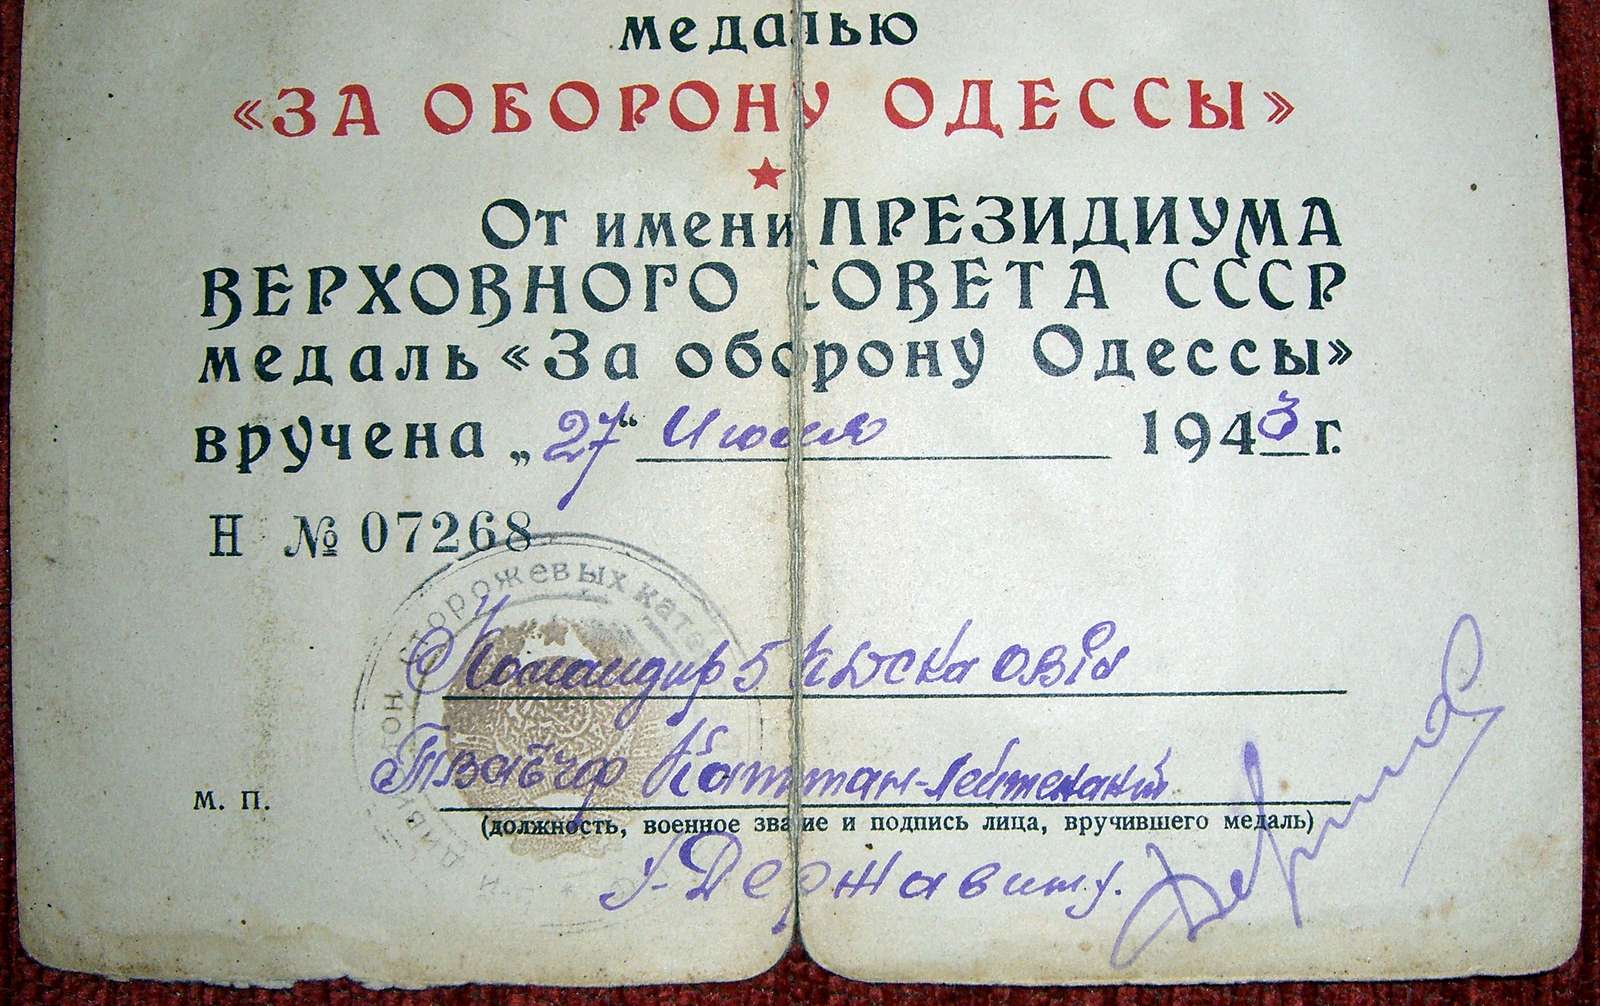 медалью
«ЗА ОБОРОНУ ОДЕССЫ»
От имени ПРЕЗИДИУМА
ВЕРХОВНОГО СОВЕТА СССР
медаль «За оборону Одессы»
вручена „27“ Июля 1943 г.
Н № 07268
дивизион сторожевых катеров
Командир 5
Капитан-лейтенант
М. П.
(должность, военное звание и подпись лица, вручившего медаль)